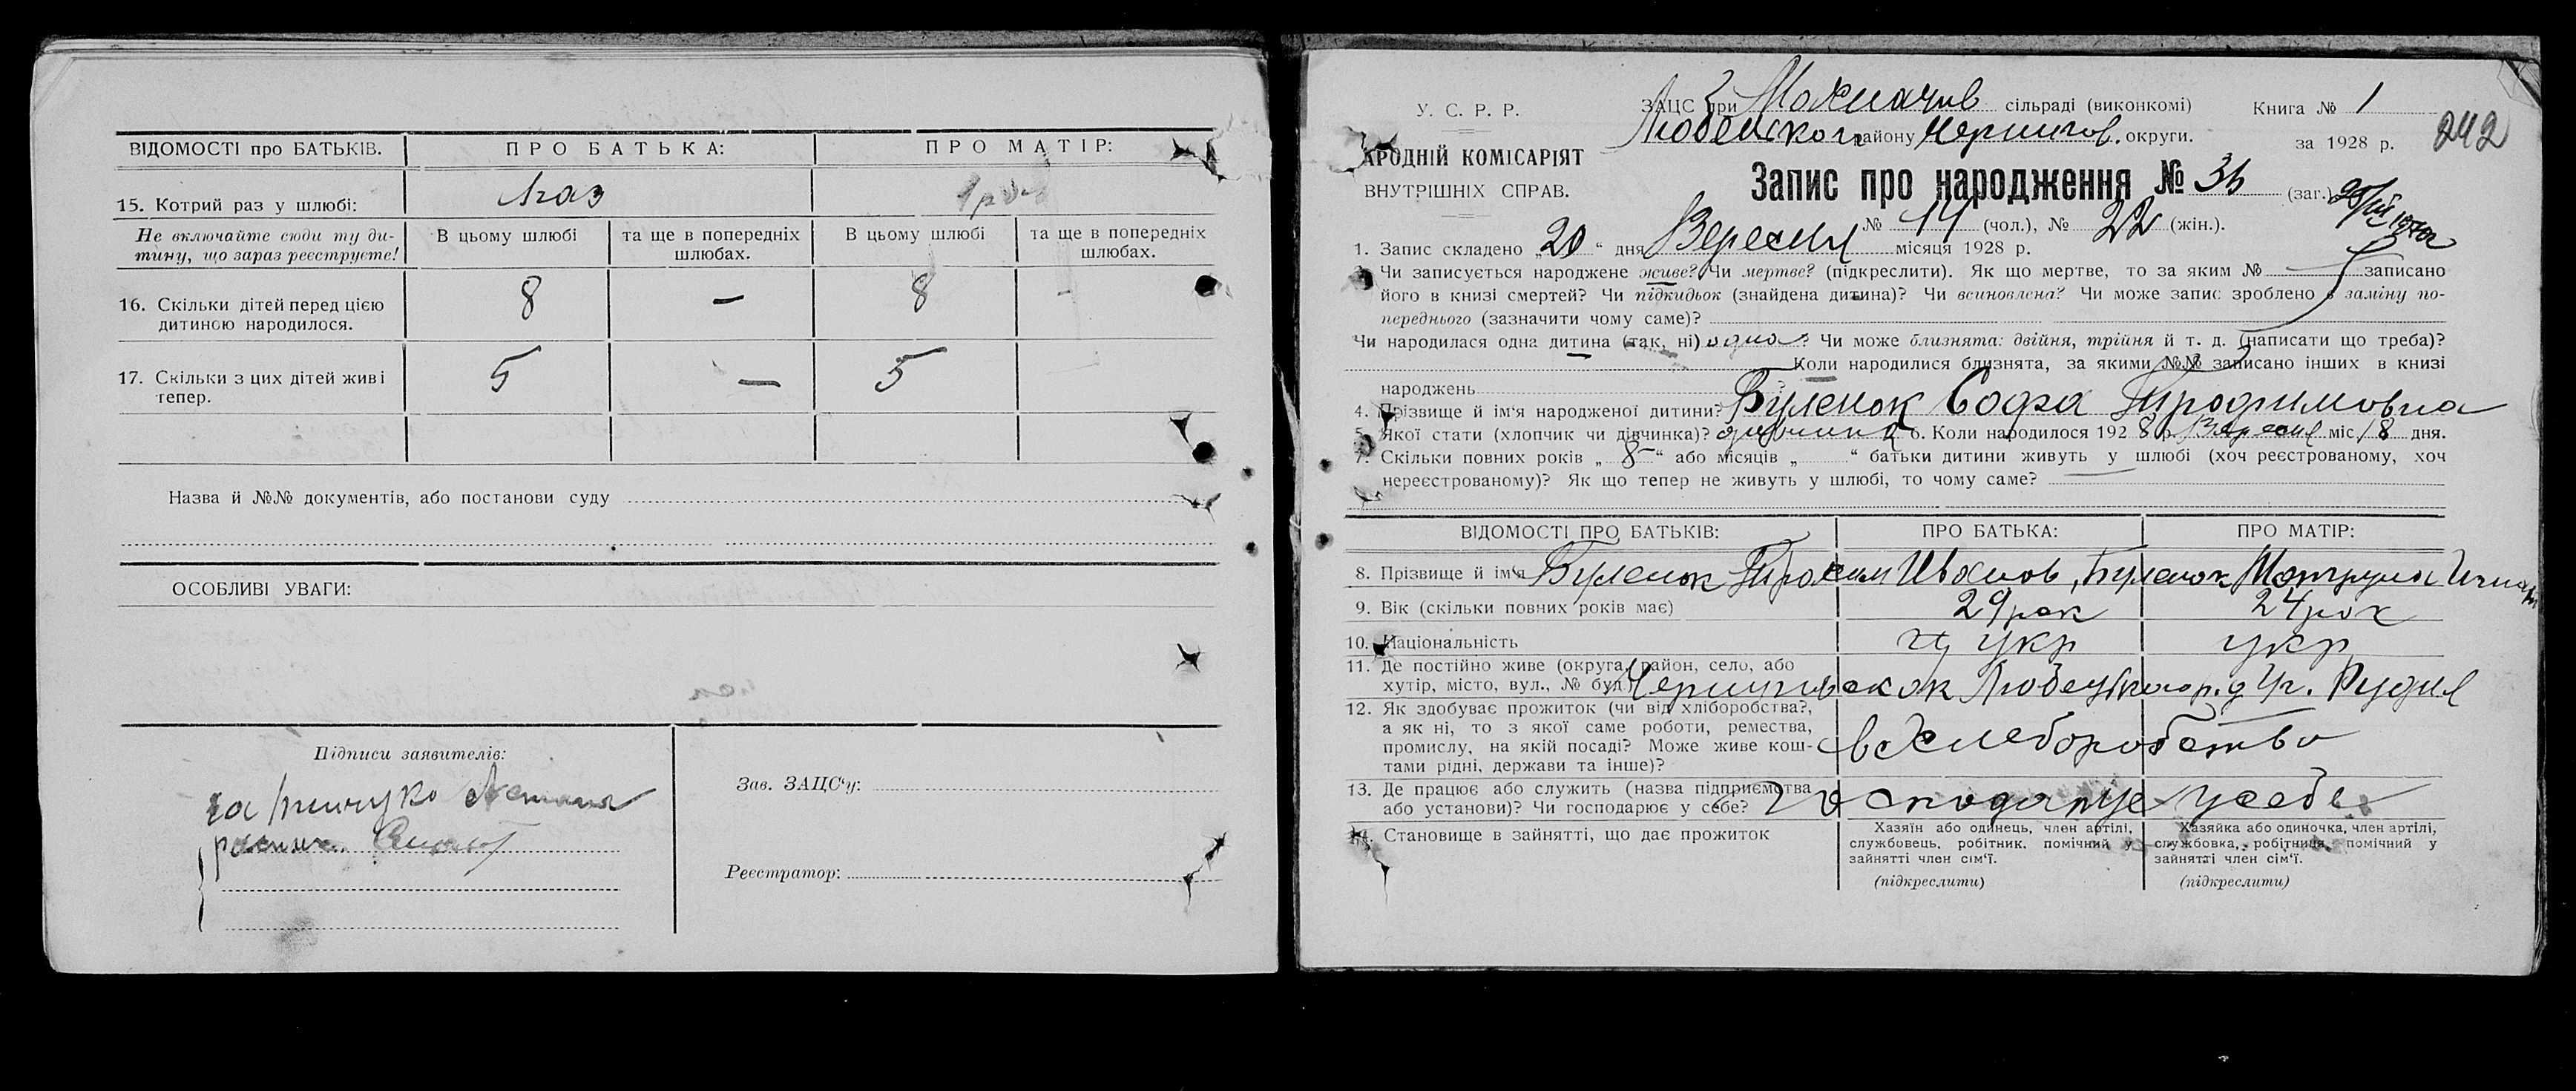 ВІДОМОСТІ про БАТЬКІВ. ПРО БАТЬКА: ПРО МАТІР:
15. Котрий раз у шлюбі: 1 раз 1 раз
Не включайте сюди ту ди-
тину, що зараз реєструєте!
В цьому шлюбі та ще в попередніх шлюбах. В цьому шлюбі та ще в попередніх шлюбах.
16. Скільки дітей перед цією
дитиною народилося. 8 — 8 -
17. Скільки з цих дітей живі
тепер. 5 — 5
Назва й №№ документів, або постанови суду
ОСОБЛИВІ УВАГИ:
Підписи заявителів:
Зав. ЗАЦС‘у:
Реєстратор:
У. С. Р. Р.
АРОДНІЙ КОМІСАРІЯТ
ВНУТРІШНІХ СПРАВ.
ЗАЦС при сільраді (виконкомі)
району Чернигов. округи.
Книга № 1
за 1928 р.
242
Запис про народження № 36 (заг.)
№ 14 (чол.), № 22 (жін.).
1. Запис складено „20“ дня Вересня місяця 1928 р.
Чи записується народжене живе? Чи мертве? (підкреслити). Як що мертве, то за яким № записано
його в книзі смертей? Чи підкидьок (знайдена дитина)? Чи всиновлена? Чи може запис зроблено в заміну по-
переднього (зазначити чому саме)?
Чи народилася одна дитина (так, ні) одна? Чи може близнята: двійня, трійня й т. д. (написати що треба)?
Коли народилися близнята, за якими №№ записано інших в книзі
народжень
4. Прізвище й ім‘я народженої дитини? Буленок Софа Трофимовна
5. Якої стати (хлопчик чи дівчинка)? 6. Коли народилося 1928 р. Вересня міс 18 дня.
7. Скільки повних років „8“ або місяців „ “ батьки дитини живуть у шлюбі (хоч реєстрованому, хоч
нереєстрованому)? Як що тепер не живуть у шлюбі, то чому саме?
ВІДОМОСТІ ПРО БАТЬКІВ: ПРО БАТЬКА: ПРО МАТІР:
8. Прізвище й ім‘я Буленок Трохим Иванов, Буленок Мотруна
9. Вік (скільки повних років має) 29 рок 24 рок
10. Національність укр укр
11. Де постійно живе (округа, район, село, або
хутір, місто, вул., № буд.)
12. Як здобуває прожиток (чи від хліборобства?,
а як ні, то з якої саме роботи, ремества,
промислу, на якій посаді? Може живе кош-
тами рідні, держави та інше)? в хлеборобство
13. Де працює або служить (назва підприємства
або установи)? Чи господарює у себе? Господарює у себе
14. Становище в зайнятті, що дає прожиток
Хазяїн або одинець, член артілі,
службовець, робітник, помічний у
зайнятті член сім‘ї.
(підкреслити)
Хазяйка або одиночка, член артілі,
службовка, робітниця, помічний у
зайнятті член сім‘ї.
(підкреслити)